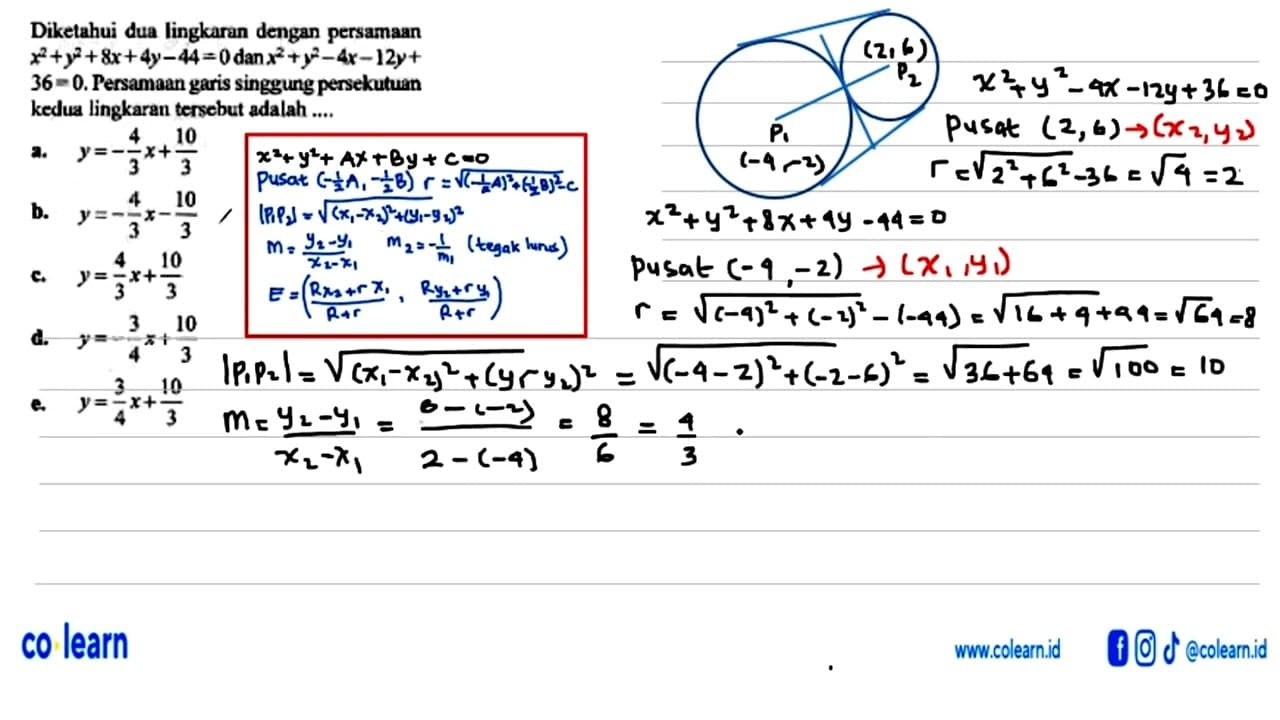 Diketahui dua lingkaran dengan persamaan
x²+y²+8x+4y−44=0 dan x²+y²−4x−12y+
36=0. Persamaan garis singgung persekutuan
kedua lingkaran tersebut adalah ....
a. y=−4/3x+10/3
b. y=−4/3x−10/3
c. y=4/3x+10/3
d. y=−3/4x+10/3
e. y=3/4x+10/3
x²+y²+Ax+By+C=0
Pusat (-½A, -½B) r=√(-½A)²+(-½B)²-C
|P₁P₂|=√(x₁-x₂)²+(y₁-y₂)²
m=y₂-y₁/x₂-x₁ m₂=-1/m₁ (tegak lurus)
E=(Rx₂+rx₁/R+r, Ry₂+ry₁/R+r)
(2,6)
P₂
P₁
(-4,-2)
x²+y²-4x-12y+36=0
Pusat (2,6)→(x₂,y₂)
r=√2²+6²-36=√4=2
x²+y²+8x+4y-44=0
Pusat (-4,-2)→(x₁,y₁)
r=√(-4)²+(-2)²-(-44)=√16+4+44=√64=8
|P₁P₂|=√(x₁-x₂)²+(y₁-y₂)²=√(-4-2)²+(-2-6)²=√36+64=√100=10
m=y₂-y₁/x₂-x₁=6-(-2)/2-(-4)=8/6=4/3
co learn
www.colearn.id
@colearn.id